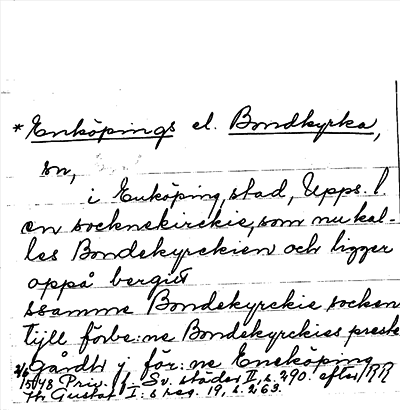 * Enköpings el. Bondkyrka,
sn,
i Enköping, stad, Upps. l.
en socknekirckie, som nu kal-
les Bondekyrckien och ligger
oppå berget
ssamme Bondekyrckie socken
tijll förbe:ne Bondekyrckies preste
Gårdh j för:ne Eneköping
1548 Priv. f. Sv. städer II, s. 290. efter RR
Gustaf I:s reg. 19, s. 263.